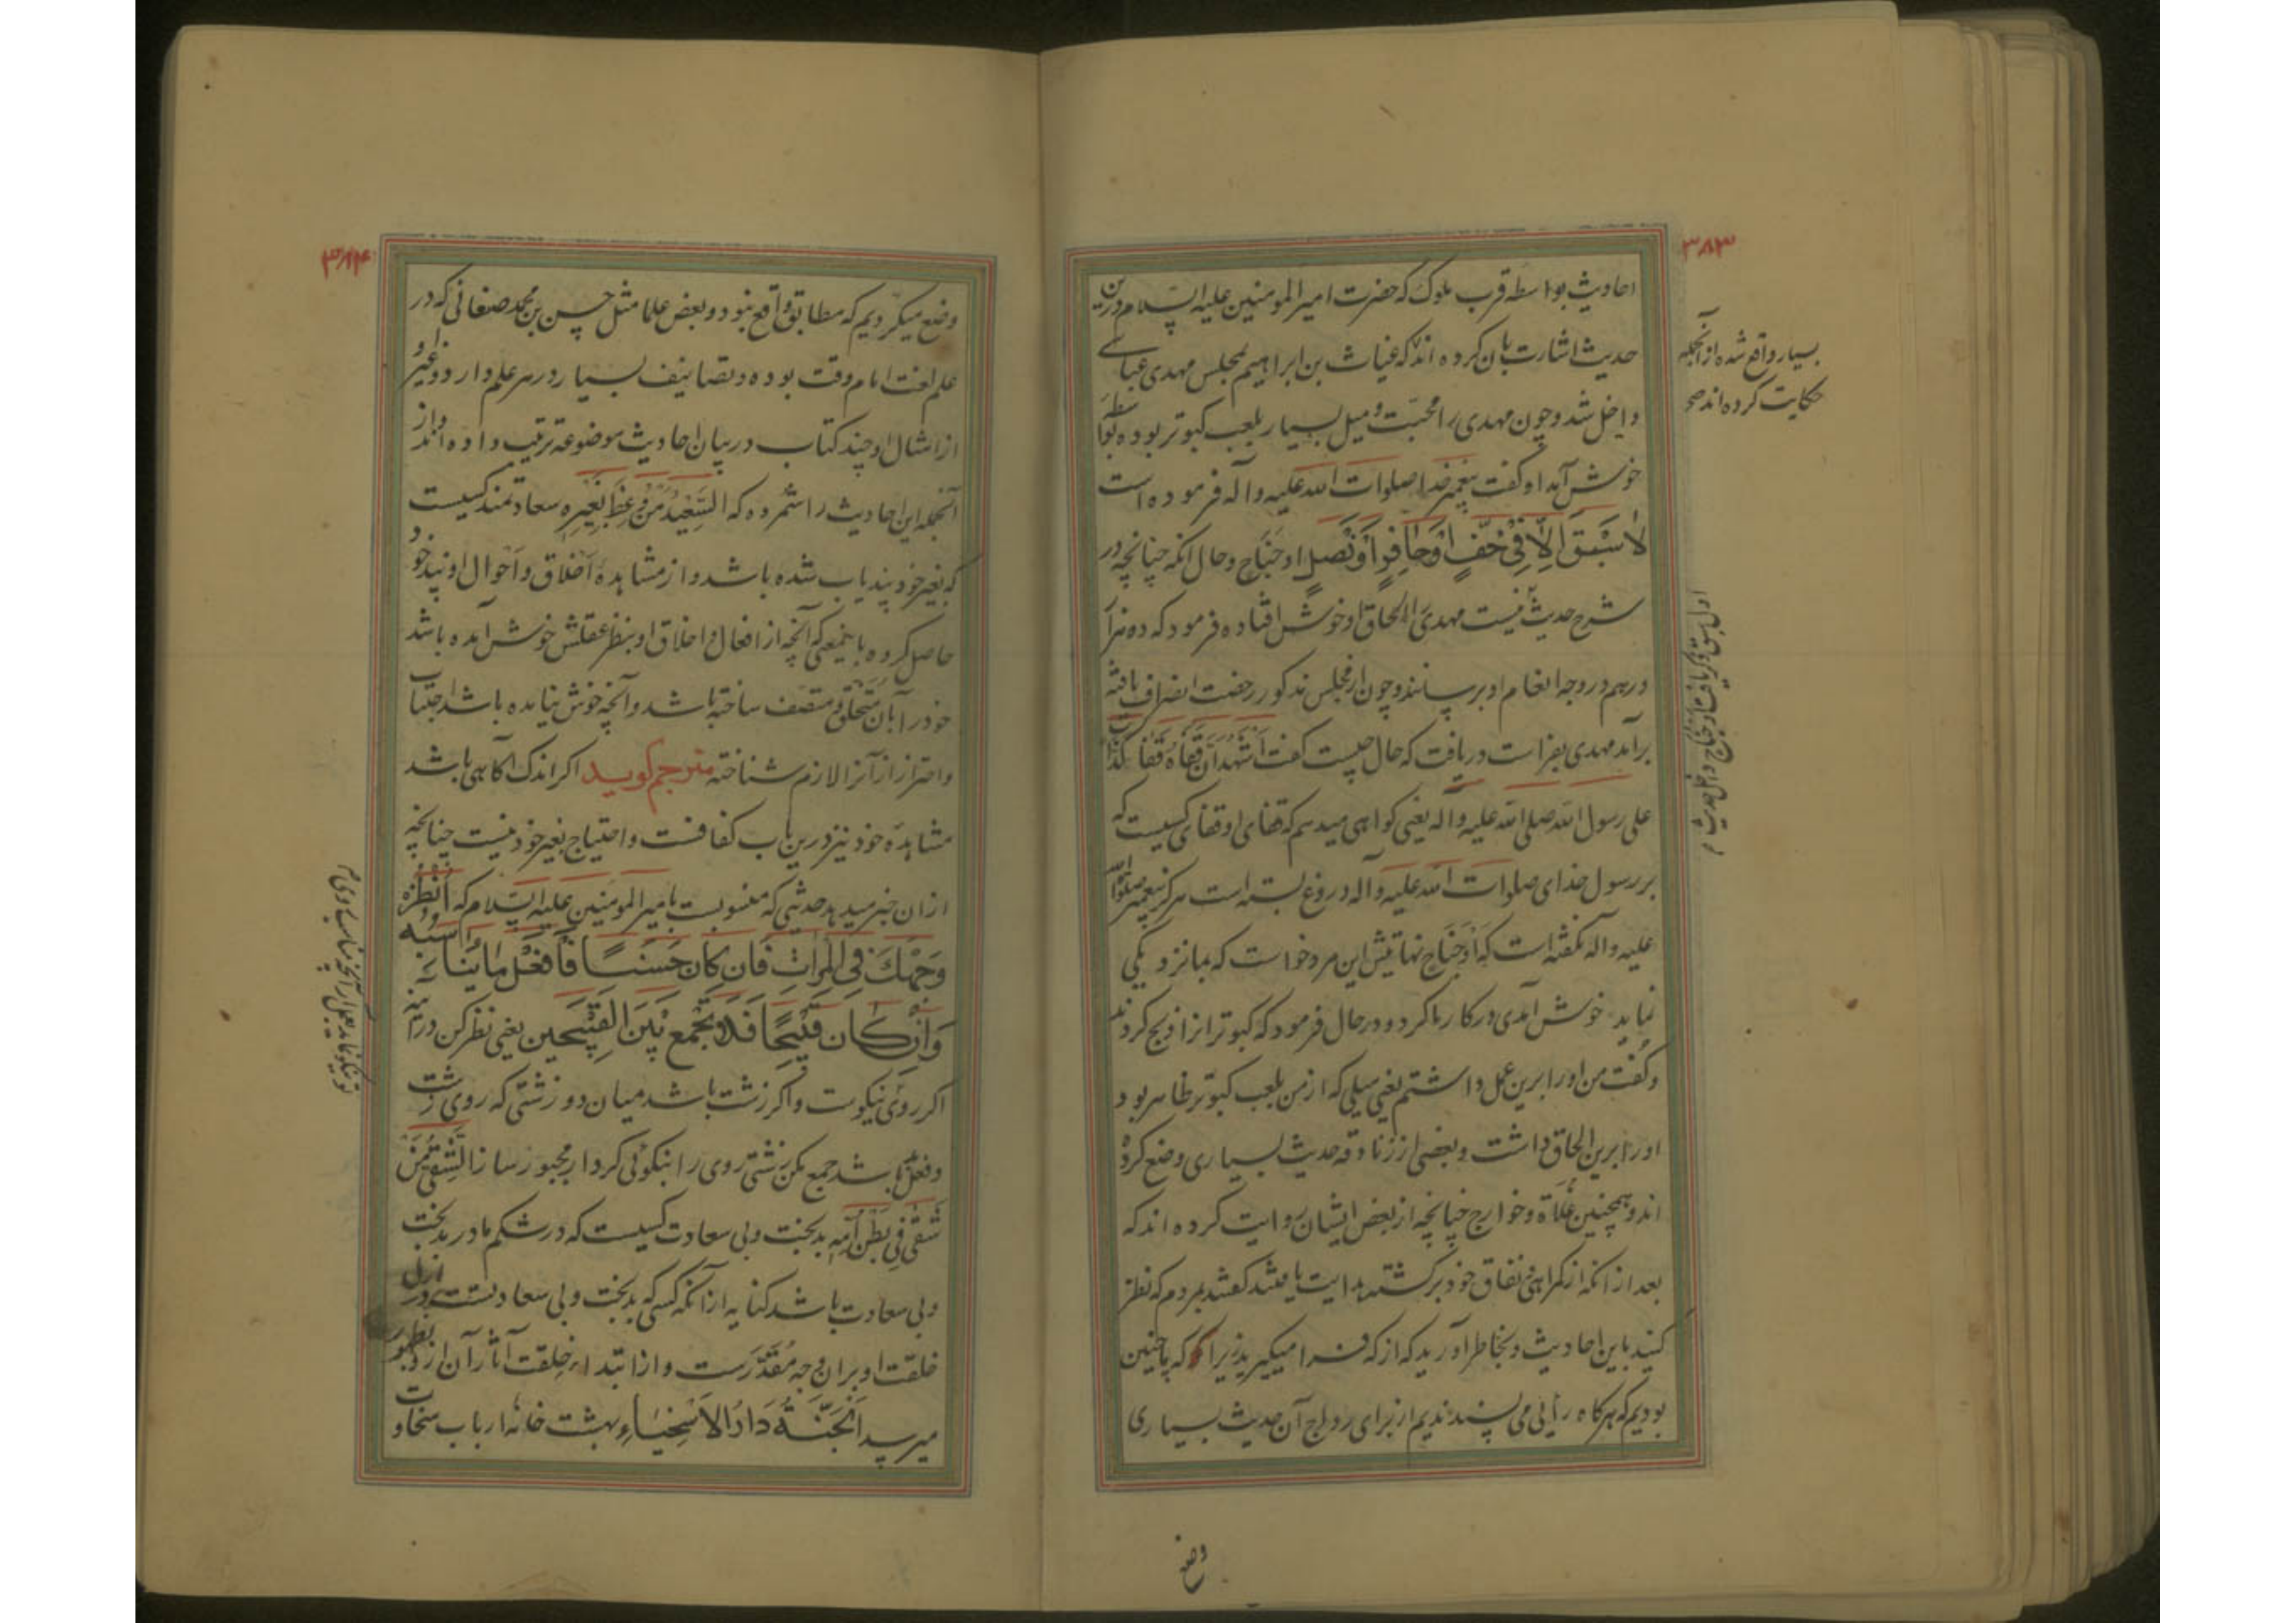 ۳۸۳
احادیث بواسطه قرب ملوک که حضرت امیر المومنین علیه السلام درین
حدیث اشارت بان کرده اند که غیاث بن ابراهیم بمجلس مهدی عباسی
داخل شد و چون مهدی را محبت و میل بسیار بلعب کبوتر بوده بواسطه
خوش آمد او گفت پیغمبر خدا صلوات الله علیه و آله فرموده است
لا سَبَقَ اِلّا فی خُفٍّ اَوْ حافِرٍ اَوْ نَصلٍ او جَناحٍ و حال آنکه چنانچه در
شرح حدیث نیست مهدی را الحاق او خوش افتاده فرمود که ده هزار
درهم در وجه انعام او برسانند و چون از مجلس مذکور رخصت انصراف یافته
برآمد مهدی بفراست دریافت که حال چیست گفت اَشْهَدُ اَنَّ قَفاهُ قَفا کَذّاب
علی رسول الله صلی الله علیه و اله یعنی کواهی میدهم که قفای او قفای کسیست که
بر رسول خدای صلوات الله علیه و آله دروغ بسته است هرکز پیغمبر صلوات الله
علیه و اله نکفته است که اَوْ جَناحٍ نهایتش این مرد خواست که بما نزدیکی
نماید خوش آمدی در کار ما کرد و در حال فرمود که کبوترانرا ذبح کردند
و کفت من او را برین عمل داشتم یعنی میلی که از من بلعب کبوتر ظاهر بود
او را برین الحاق داشت و بعضی از زنادقه حدیث بسیاری وضع کرده
اند و همچنین غُلاة و خوارج چنانچه از بعض ایشان روایت کرده اند که
بعد از انکه از کمراهی و نفاق خود برکشته هدایت یافتند کفتند بمردم که نظر
کنید باین احادیث و بخاطر آورید که از که فرا میکیرید زیرا که ما چنین
بودیم که هرکاه رأیی می پسندیدیم از برای رواج آن حدیث بسیاری
بسیار واقع شده از آنجمله
حکایت کرده اند صح
وضع
۳۸۴
وضع میکردیم که مطابق واقع نبود و بعض علما مثل حسن بن محمد صغانی که در
علم لغت امام وقت بوده و تصانیف بسیار در هر علم دارد و غیر او
از امثال او چند کتاب در بیان احادیث موضوعه ترتیب داده اند و از
آنجمله این احادیث را شمرده که السَّعیدُ مَنْ وُعِظَ بِغَیرِه سعادتمند کسیست
که بغیر خود پند یاب شده باشد و از مشاهدهٔ اخلاق و احوال او پند خود
حاصل کرده باینمعنی که آنچه از افعال و اخلاق او بنظر عقلش خوش آمده باشد
خود را بآن متخلق و متصف ساخته باشد و آنچه خوش نیامده باشد اجتناب
و احتراز از آنرا لازم شناخته مترجم کوید اکر اندک آکاهی باشد
مشاهدهٔ خود نیز درین باب کفافست و احتیاج بغیر خود نیست چنانچه
از ان خبر میدهد حدیثی که منسوبست بامیر المومنین علیه السلام که اُنْظُرْ
وَجْهَکَ فِی الْمِرآتِ فَاِن کانَ حَسَنًا فَافْعَلْ ما یُناسِبُه
وَ اِنْ کانَ قَبیحًا فَلا تَجْمَع بَیْنَ القَبیحَین یعنی نظر کن در آینه
اکر روئی نیکوست و اکر زشت باشد میان دو زشتی که روی زشت
و فعل باشد جمع مکن زشتی روی را بنکوئی کردار مجبور ساز الشَّقِیُّ مَنْ
شَقِیَ فی بَطْنِ اُمِّهِ بدبخت و بی سعادت کسیست که در شکم مادر بدبخت
و بی سعادت باشد کنایه از آنکه کسی که بدبخت و بی سعادتست در ازل
خلقت او بران وجه مُقَدَّرست و از ابتداء خلقت آثار آن از و بظهور
میرسد اَلجَنَّةُ دَارُ الاَسْخِیاءِ بهشت خانهٔ ارباب سخاوت